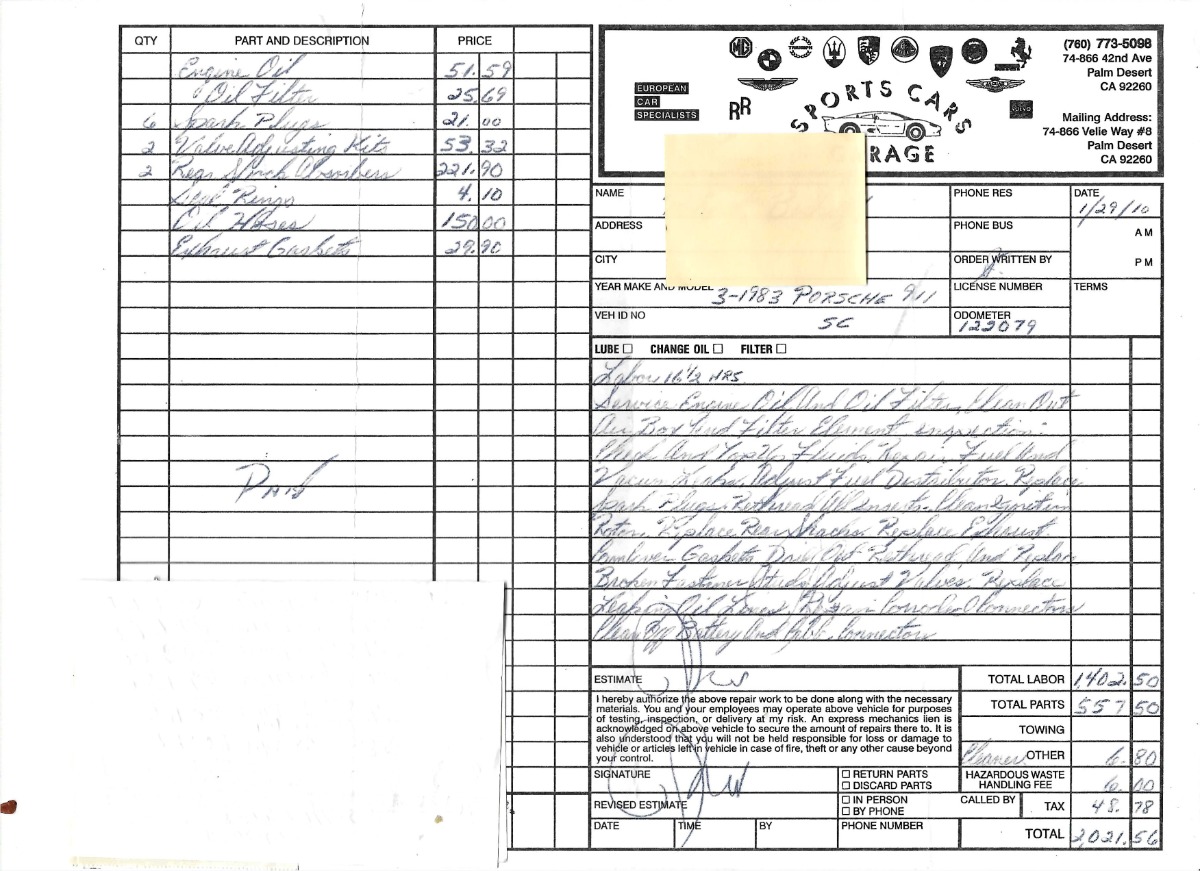 QTY PART AND DESCRIPTION PRICE
Engine Oil 51.59
Oil Filter 25.69
6 Spark Plugs 21.00
2 Valve Adjusting Kits 53.32
2 Rear Shock Absorbers 221.90
Seal Rings 4.10
Oil Hoses 150.00
Exhaust Gaskets 29.90
Paid
MG
TRIUMPH
EUROPEAN
CAR
SPECIALISTS
RR
SPORTS CARS
RAGE
(760) 773-5098
74-866 42nd Ave
Palm Desert
CA 92260
Mailing Address:
74-866 Velie Way #8
Palm Desert
CA 92260
NAME PHONE RES DATE 1/29/10
ADDRESS PHONE BUS AM
CITY ORDER WRITTEN BY PM
YEAR MAKE AND MODEL 3-1983 PORSCHE 911 LICENSE NUMBER TERMS
VEH ID NO SC ODOMETER 122079
LUBE ☐ CHANGE OIL ☐ FILTER ☐
Labor 16 1/2 HRS
Service Engine Oil And Oil Filter, Clean Out
Air Box And Filter Element
And Top Up Fluids, Repair Fuel And
Vacum Leaks, Adjust Fuel Distributor, Replace
Spark Plugs, Rethread All Inserts. Clean Ignition
Rotor. Replace Rear Shocks. Replace Exhaust
Gaskets Drill Out Rethread, And Replace
Broken Fastener Studs, Adjust Valves, Replace
Leaking Oil Lines, Repair Connectors
Clean Off Battery And Connectors
ESTIMATE
I hereby authorize the above repair work to be done along with the necessary
materials. You and your employees may operate above vehicle for purposes
of testing, inspection, or delivery at my risk. An express mechanics lien is
acknowledged on above vehicle to secure the amount of repairs there to. It is
also understood that you will not be held responsible for loss or damage to
vehicle or articles left in vehicle in case of fire, theft or any other cause beyond
your control.
SIGNATURE
☐ RETURN PARTS
☐ DISCARD PARTS
REVISED ESTIMATE
☐ IN PERSON
☐ BY PHONE
DATE TIME BY PHONE NUMBER
TOTAL LABOR 1,402.50
TOTAL PARTS 557 50
TOWING
Cleaner OTHER 6.80
HAZARDOUS WASTE
HANDLING FEE 6.00
CALLED BY TAX 48.78
TOTAL 2,021.56